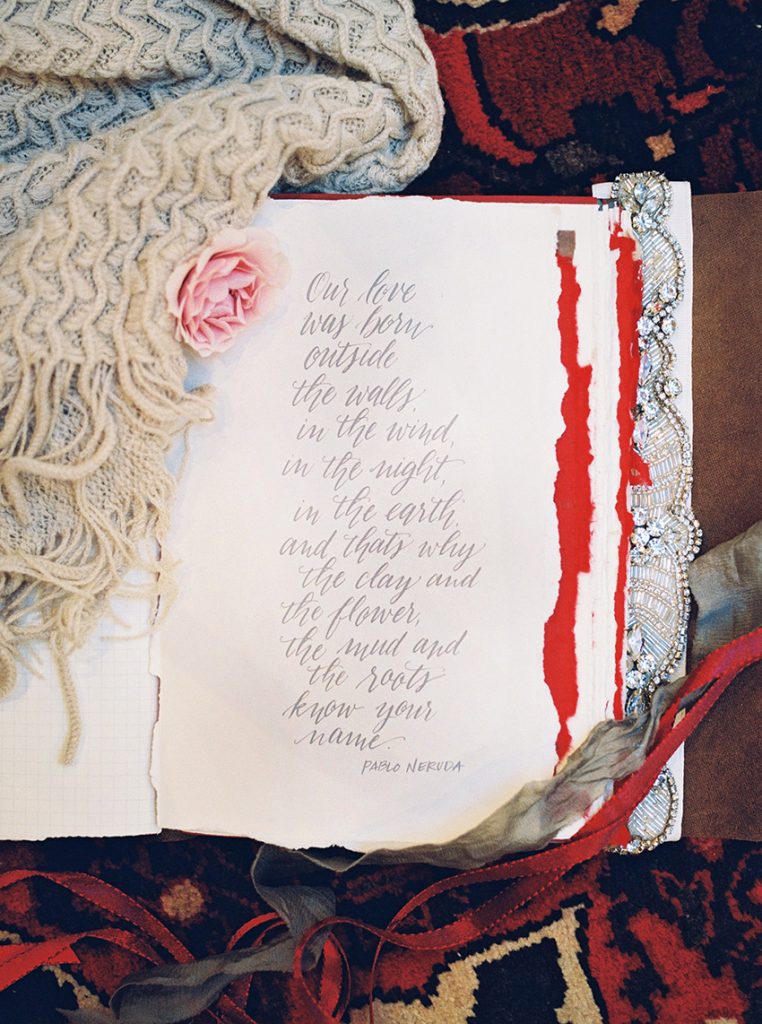 Our love
was born
outside
the walls,
in the wind,
in the night,
in the earth,
and thats why
the clay and
the flower,
the mud and
the roots
know your
name.
PABLO NERUDA